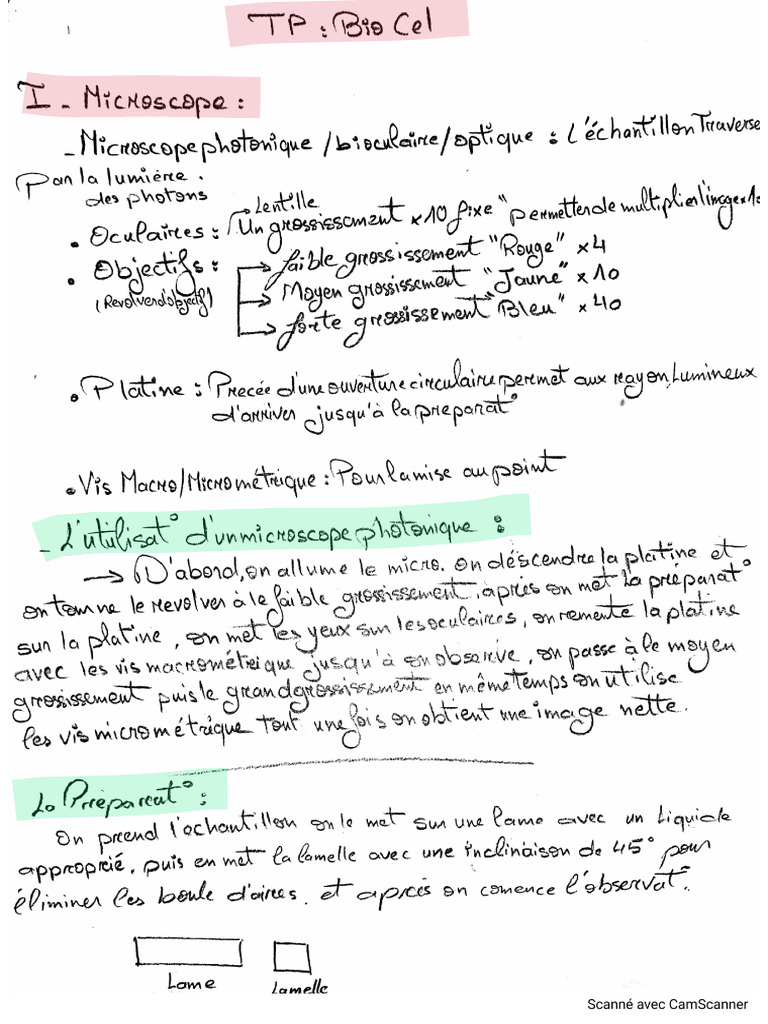 TP : Bio Cel
I - Microscope :
- Microscope photonique / bioculaire / optique : L'échantillon Traverse
par la lumière.
des photons
Lentille
• Oculaires : Un grossissement ×10 fixe "permetter de multiplier l'image ×10
• Objectifs : → faible grossissement "Rouge" ×4
(Revolver d'objectif) → Moyen grossissement "Jaune" ×10
→ forte grossissement "Bleu" ×40
• Platine : Precée d'une ouverture circulaire permet aux rayon Lumineux
d'arriver jusqu'à la preparat°
• Vis Macro/Micrométrique : Pour la mise au point
- L'utilisat° d'un microscope photonique :
→ D'abord, on allume le micro. on déscendre la platine et
on tourne le revolver à le faible grossissement, après on met la préparat°
sur la platine, on met les yeux sur les oculaires, on remente la platine
avec les vis macrométrique jusqu'à on observe, on passe à le moyen
grossissement puis le grand grossissement en même temps on utilise
les vis micrométrique tout une fois on obtient une image nette.
Lo Préparat° :
On prend l'echantillon on le met sur une lame avec un liquide
approprié, puis en met la lamelle avec une inclinaison de 45° pour
éliminer les boule d'aires, et après on comence l'observat°.
Lame
Lamelle
Scanné avec CamScanner